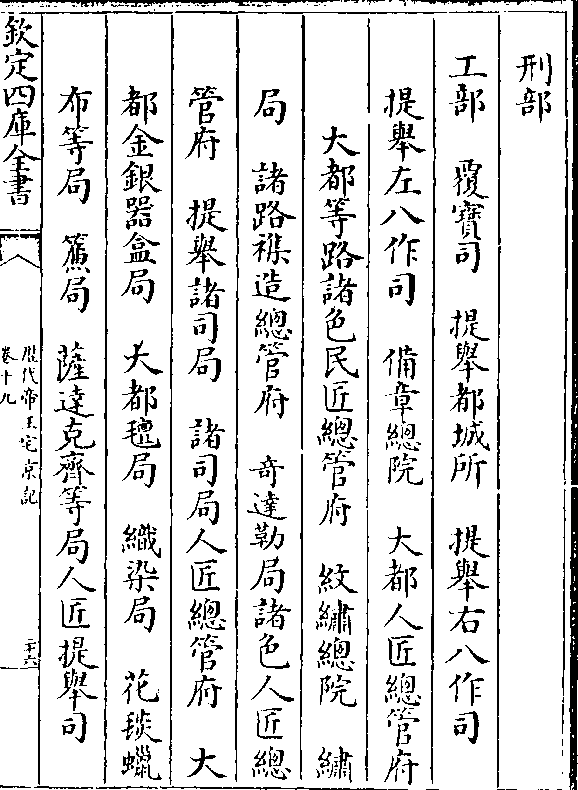 刑部
工部　覆實司　提舉都城所　提舉右八作司
提舉左八作司　備章總院　大都人匠總管府
大都等路諸色民匠總管府　紋繡總院　繡
局　諸路襍造總管府　奇達勒局諸色人匠總
管府　提舉諸司局　諸司局人匠總管府　大
都金銀器盒局　大都氊局　織染局　花毯蠟
布等局　簾局　薩達克齊等局人匠提舉司
欽定四庫全書
歷代帝王宅京記
卷十九
二十六